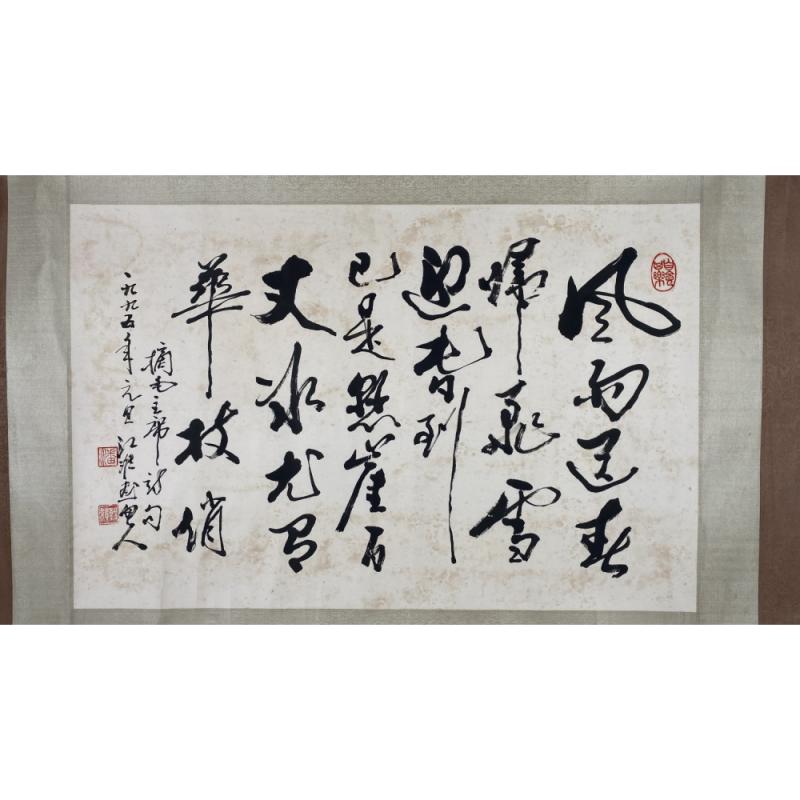 風雨送春
歸飛雪
迎春到
已是懸崖百
丈冰尤有
華枝俏
摘毛主席詩句
一九九五年元旦江淮